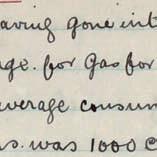 having gone int
age. for Gas for
average consum
s. was 1000 c